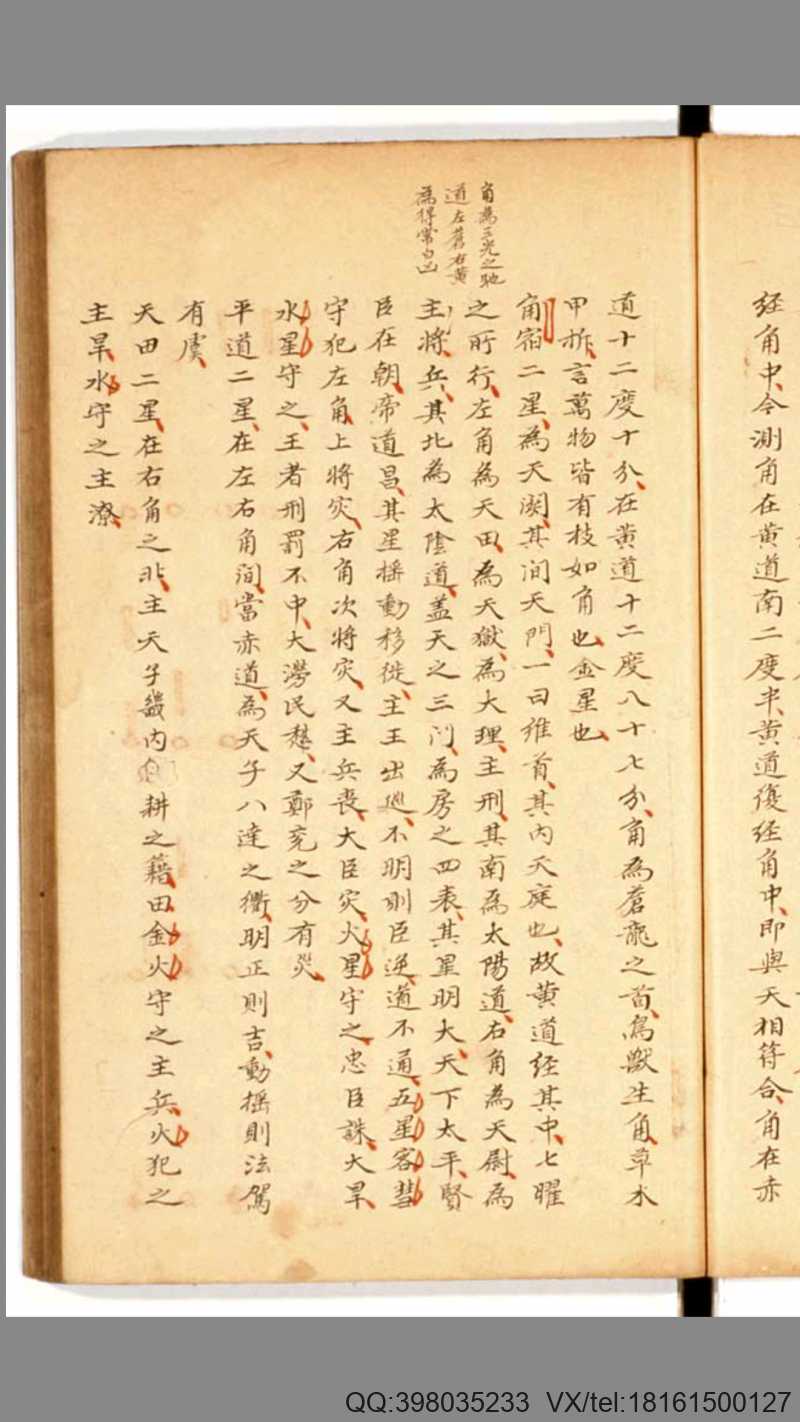 經角中今測角在黄道南二度半黄道復經角中即與天相符合角在赤
道十二度十分在黄道十二度八十七分角為蒼龍之首鳥獸生角草木
甲拆言萬物皆有枝如角也金星也
角宿二星為天闕其间天門一曰維首其内天庭也故黄道經其中七曜
之所行左角為天田為天獄為大理主刑其南為太陽道右角為天尉為
主將兵其北為太陰道蓋天之三门為房之四表其星明大天下太平賢
臣在朝帝道昌其星搖動移徙主王出廵不明則臣逆道不通五星客彗
守犯左角上將灾右角次將灾又主兵丧大臣灾火星守之忠臣誅大旱
水星守之王者刑罰不中大澇民愁又鄭兖之分有災
平道二星在左右角间當赤道為天子八達之衢明正則吉動摇則法駕
有虞
天田二星在右角之北主天子畿内耕之藉田金火守之主兵火犯之
主旱水守之主潦
角為三光之馳
道左蒼右黄
為得常白凶
QQ:398035233 VX/tel:18161500127